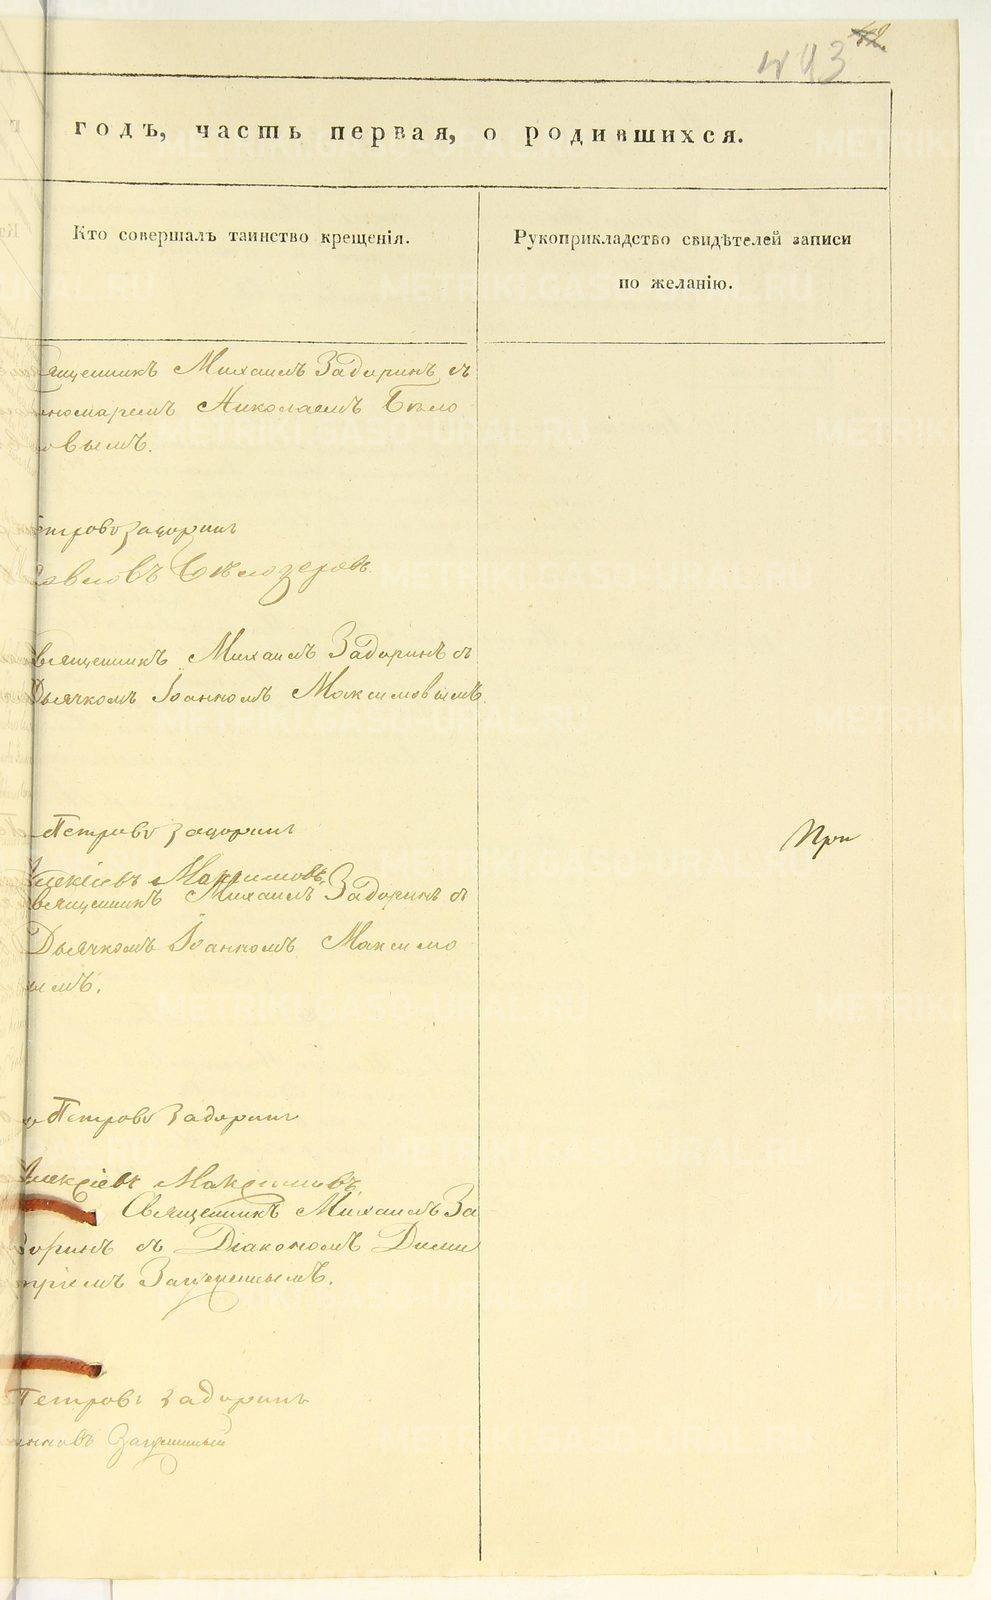 443
годъ, часть первая, о родившихся.
Кто совершалъ таинство крещенія.
Рукоприкладство свидѣтелей записи
по желанію.
ященникъ Михаилъ Задоринъ съ
ономаремъ Николаемъ Бѣло
овымъ.
етровъ Задоринъ
Бѣлозеровъ
вященникъ Михаилъ Задоринъ съ
Дьячкомъ Іоанномъ Максимовымъ
Петровъ Задоринъ
При
лексіевъ Максимовъ
вященникъ Михаилъ Задоринъ съ
Дьячкомъ Іоанномъ Максимо
ымъ.
Петровъ Задоринъ
Алексіевъ Максимовъ
Священникъ Михаилъ За
доринъ съ Діакономъ Дими
тріемъ
Петровъ Задоринъ
METRIKI.GASO-URAL.RU